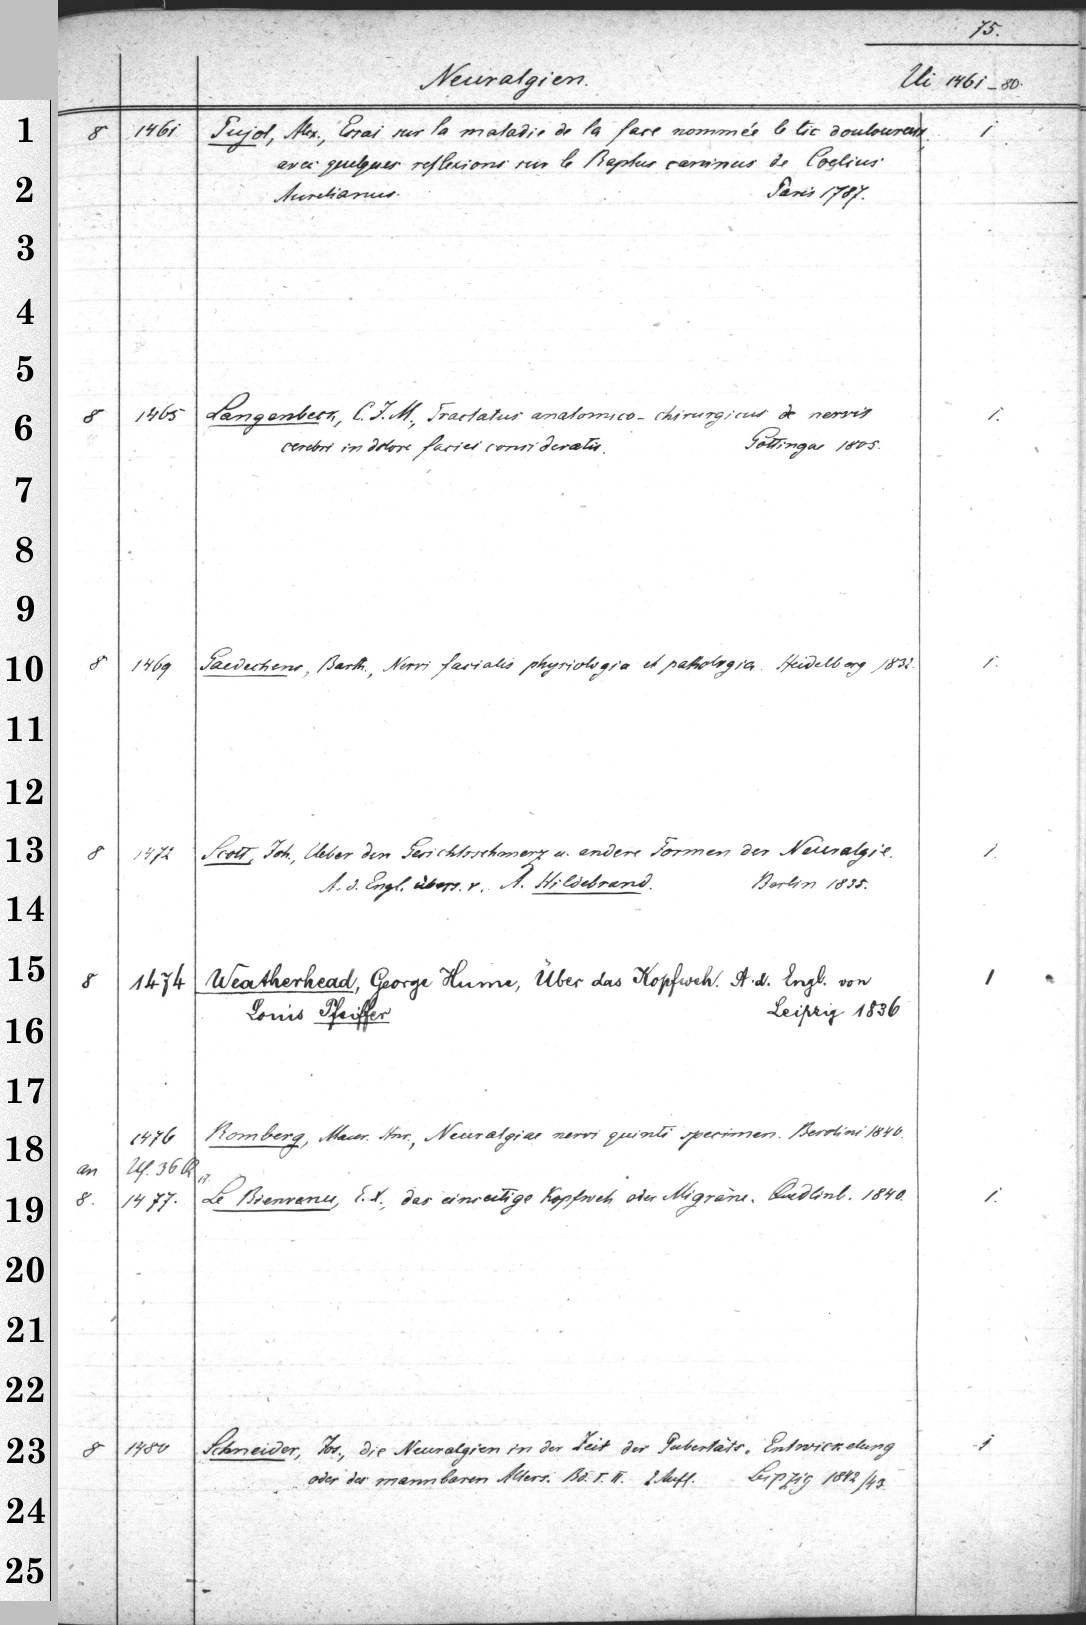 75.
Neuralgien. Ui 1461-80.
1 8 1461 Pujol, Alex., Essai sur la maladie de la face nommée le tic douloureux, 1
avec quelques reflexions sur le Raptus caninus de Coelius
2 Aurelianus. Paris 1787.
3
4
5
6 8 1465 Langenbeck, C. J. M., Tractatus anatomico-chirurgicus de nervis 1.
cerebri in dolore faciei consideratis. Göttingae 1805.
7
8
9
10 8 1469 Gaedechens, Barth., Nervi facialis physiologia et pathologia. Heidelberg 1832. 1.
11
12
13 8 1472 Scott, Joh., Ueber den Gesichtsschmerz u. andere Formen der Neuralgie. 1.
A. d. Engl. übers. v. A. Hildebrand. Berlin 1835.
14
15 8 1474 Weatherhead, George Hume, Über das Kopfweh. A. d. Engl. von 1
16 Louis Pfeiffer Leipzig 1836
17
18 1476 Romberg, Maur. Hnr., Neuralgiae nervi quinti specimen. Berolini 1840.
an Uf. 36
19 8. 1477. Le Bienvenu, E. d., das einseitige Kopfweh oder Migräne. Quedlinb. 1840. 1.
20
21
22
23 8 1480 Schneider, Jos., die Neuralgien in der Zeit der Pubertäts-Entwickelung 1
oder des mannbaren Alters. Bd. I. II. 2 Aufl. Leipzig 1842/43.
24
25